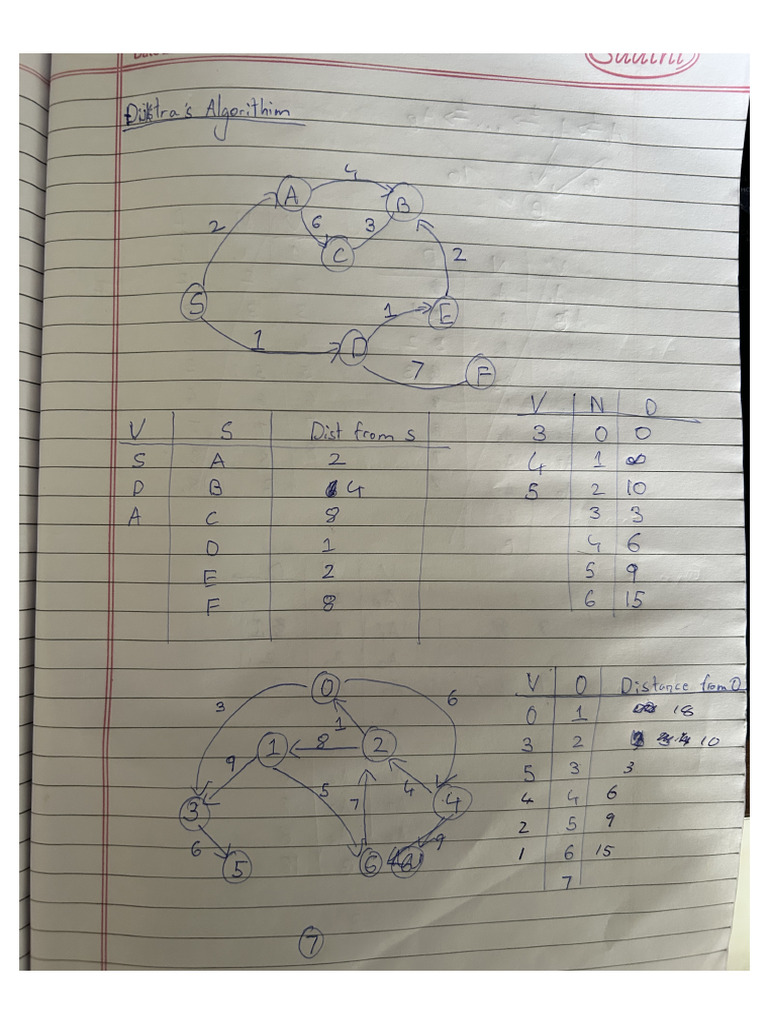 Dijkstra's Algorithim
4
A
B
6
3
2
C
2
S
1
E
1
D
7
F
V S Dist from s
S A 2
D B 4
A C 8
D 1
E 2
F 8
V N D
3 0 0
4 1 ∞
5 2 10
3 3
4 6
5 9
6 15
0
3
6
1
1
8
2
9
5
7
4
3
4
6
9
5
6
7
V 0 Distance from 0
0 1 18
3 2 10
5 3 3
4 4 6
2 5 9
1 6 15
7